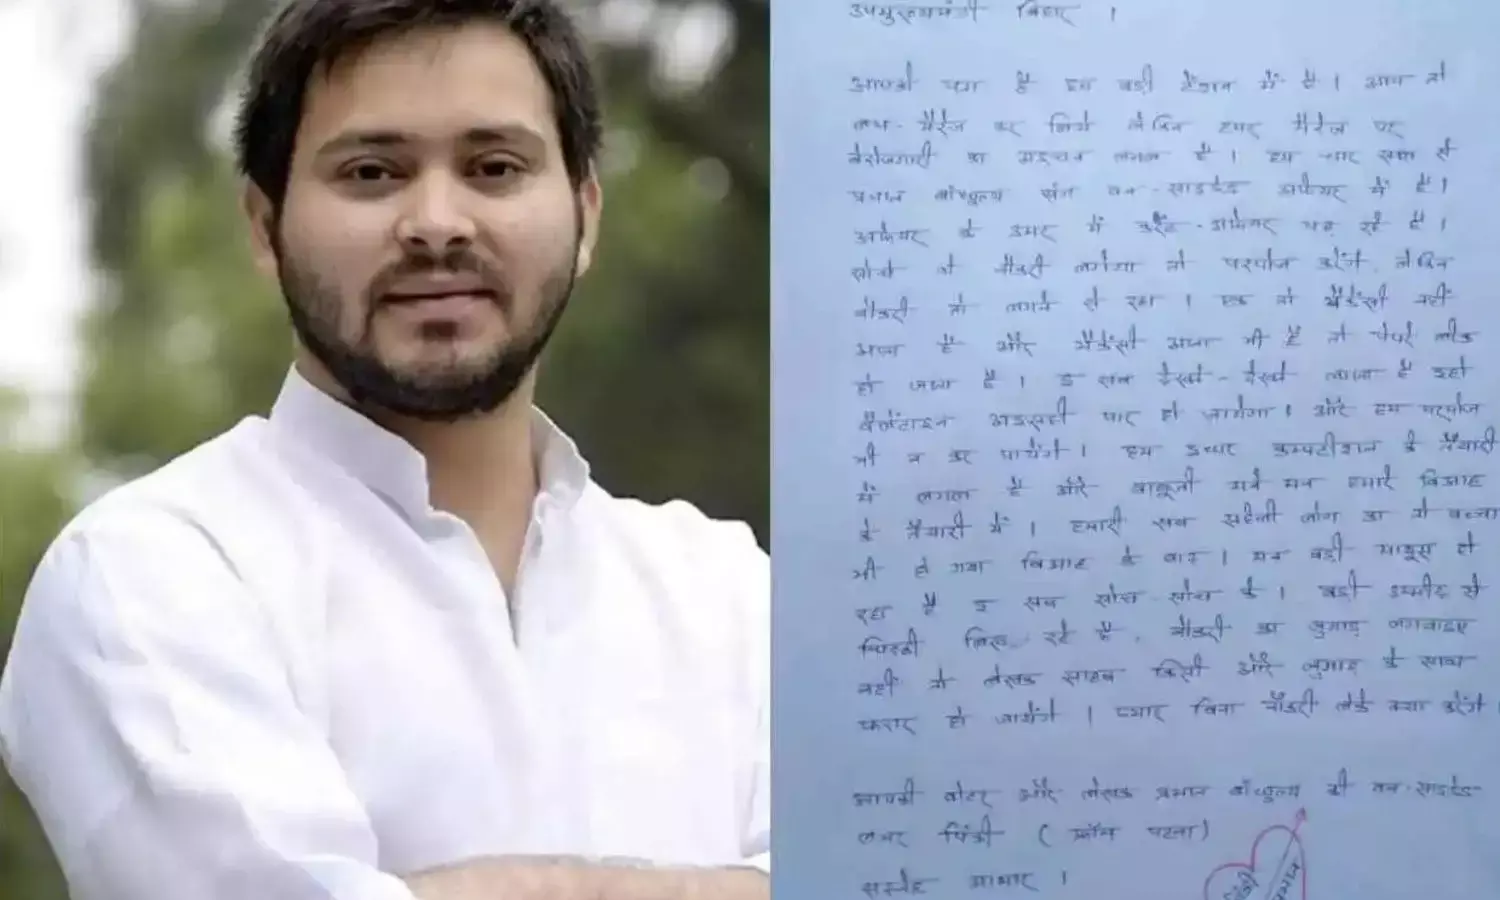 उपमुख्यमंत्री बिहार ।
आपको पता है हम बड़ी टेंशन में है । आप तो
लव-मैरेज कर लिये लेकिन हमार मैरेज पर
बेरोजगारी का अड़चन लगल है । हम चार साल से
प्रभात बांधुल्य संग वन-साइडेड अफेयर में है ।
अफेयर के उमर में करेंट-अफेयर पढ़ रहे है ।
सोचे थे नौकरी लगेगा तो परपोज करेंगे, लेकिन
नौकरी तो लगने से रहा । एक तो वैकेंसी नहीं
आता है और वैकेंसी आता भी है तो पेपरे लीक
हो जाता है । इ सब देखते-देखते लगता है इहो
वैलेंटाइन अइसही पार हो जायेगा । और हम परपोज
भी न कर पायेंगे । हम इधर कम्पटीशन के तैयारी
में लगल है और बाबूजी मने मन हमारे बिआह
के तैयारी में । हमारी सब सहेली लोग का तो बच्चा
भी हो गया बिआह के बाद । मन बड़ी मायूस हो
रहा है इ सब सोच-सोच के । बड़ी उम्मीद से
चिट्ठी लिख रहे है, नौकरी का जुगाड़ लगवाइए
नहीं तो लेखक साहब किसी और जुगाड़ के साथ
फरार हो जायेंगे । हमार बिना नौकरी लेके क्या करेंगे ।
आपकी वोटर और लेखक प्रभात बांधुल्य की वन-साइडेड
लवर पिंकी ( फ्रॉम पटना)
सस्नेह आभार ।
पिंकी
प्रभात